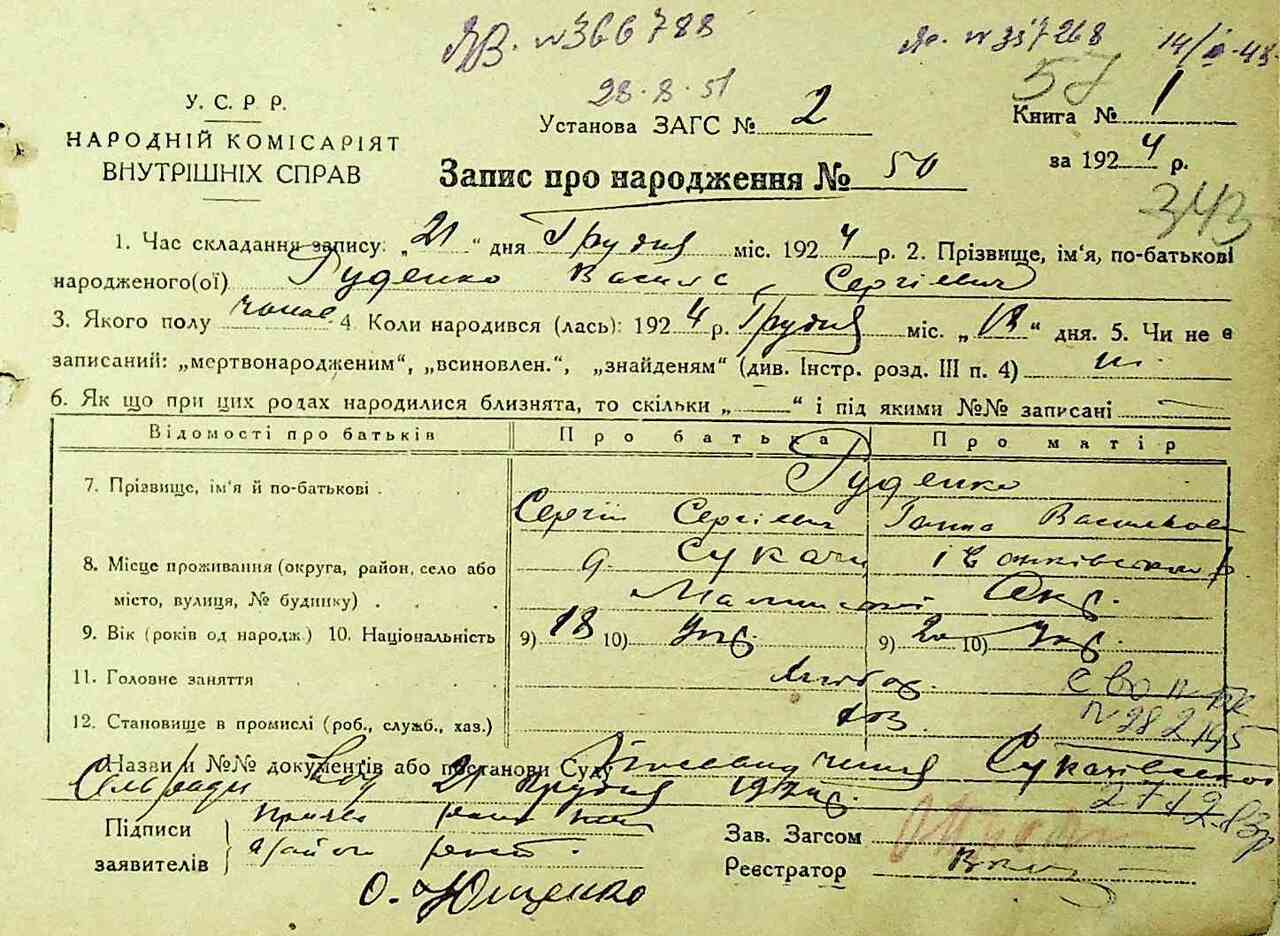 № 366788
28.8.51
№ 357268
57
У. С. Р. Р.
НАРОДНІЙ КОМІСАРІЯТ
ВНУТРІШНІХ СПРАВ
Установа ЗАГС № 2
Книга № 1
за 1924 р.
Запис про народження № 50
343
1. Час складання запису: „21“ дня Грудня міс. 1924 р. 2. Прізвище, ім'я, по-батькові
народженого(ої) Руденко Василь Сергієвич
3. Якого полу чолов 4. Коли народився (лась): 1924 р. Грудня міс. „18“ дня. 5. Чи не є
записаний: „мертвонародженим“, „всиновлен.“, „знайденям“ (див. Інстр. розд. III п. 4) ні
6. Як що при цих родах народилися близнята, то скільки „ “ і під якими №№ записані
Відомості про батьків Про батька Про матір
7. Прізвище, ім'я й по-батькові Руденко
Сергій Сергієвич Ганна Васильков
8. Місце проживання (округа, район, село або с. Сукачі Іванківського р.
місто, вулиця, № будинку) Малинської Окр.
9. Вік (років од народж.) 10. Національність 9) 18 10) Укр. 9) 20 10) Укр.
11. Головне заняття Хлібор.
12. Становище в промислі (роб., служб., хаз.) хаз.
№ 282145
Назви й №№ документів або постанови Суду Посвідчення Сукачівської
Сільради від 21 Грудня 1924 р.
Підписи
заявителів
Зав. Загсом
Реєстратор
О. Ющенко